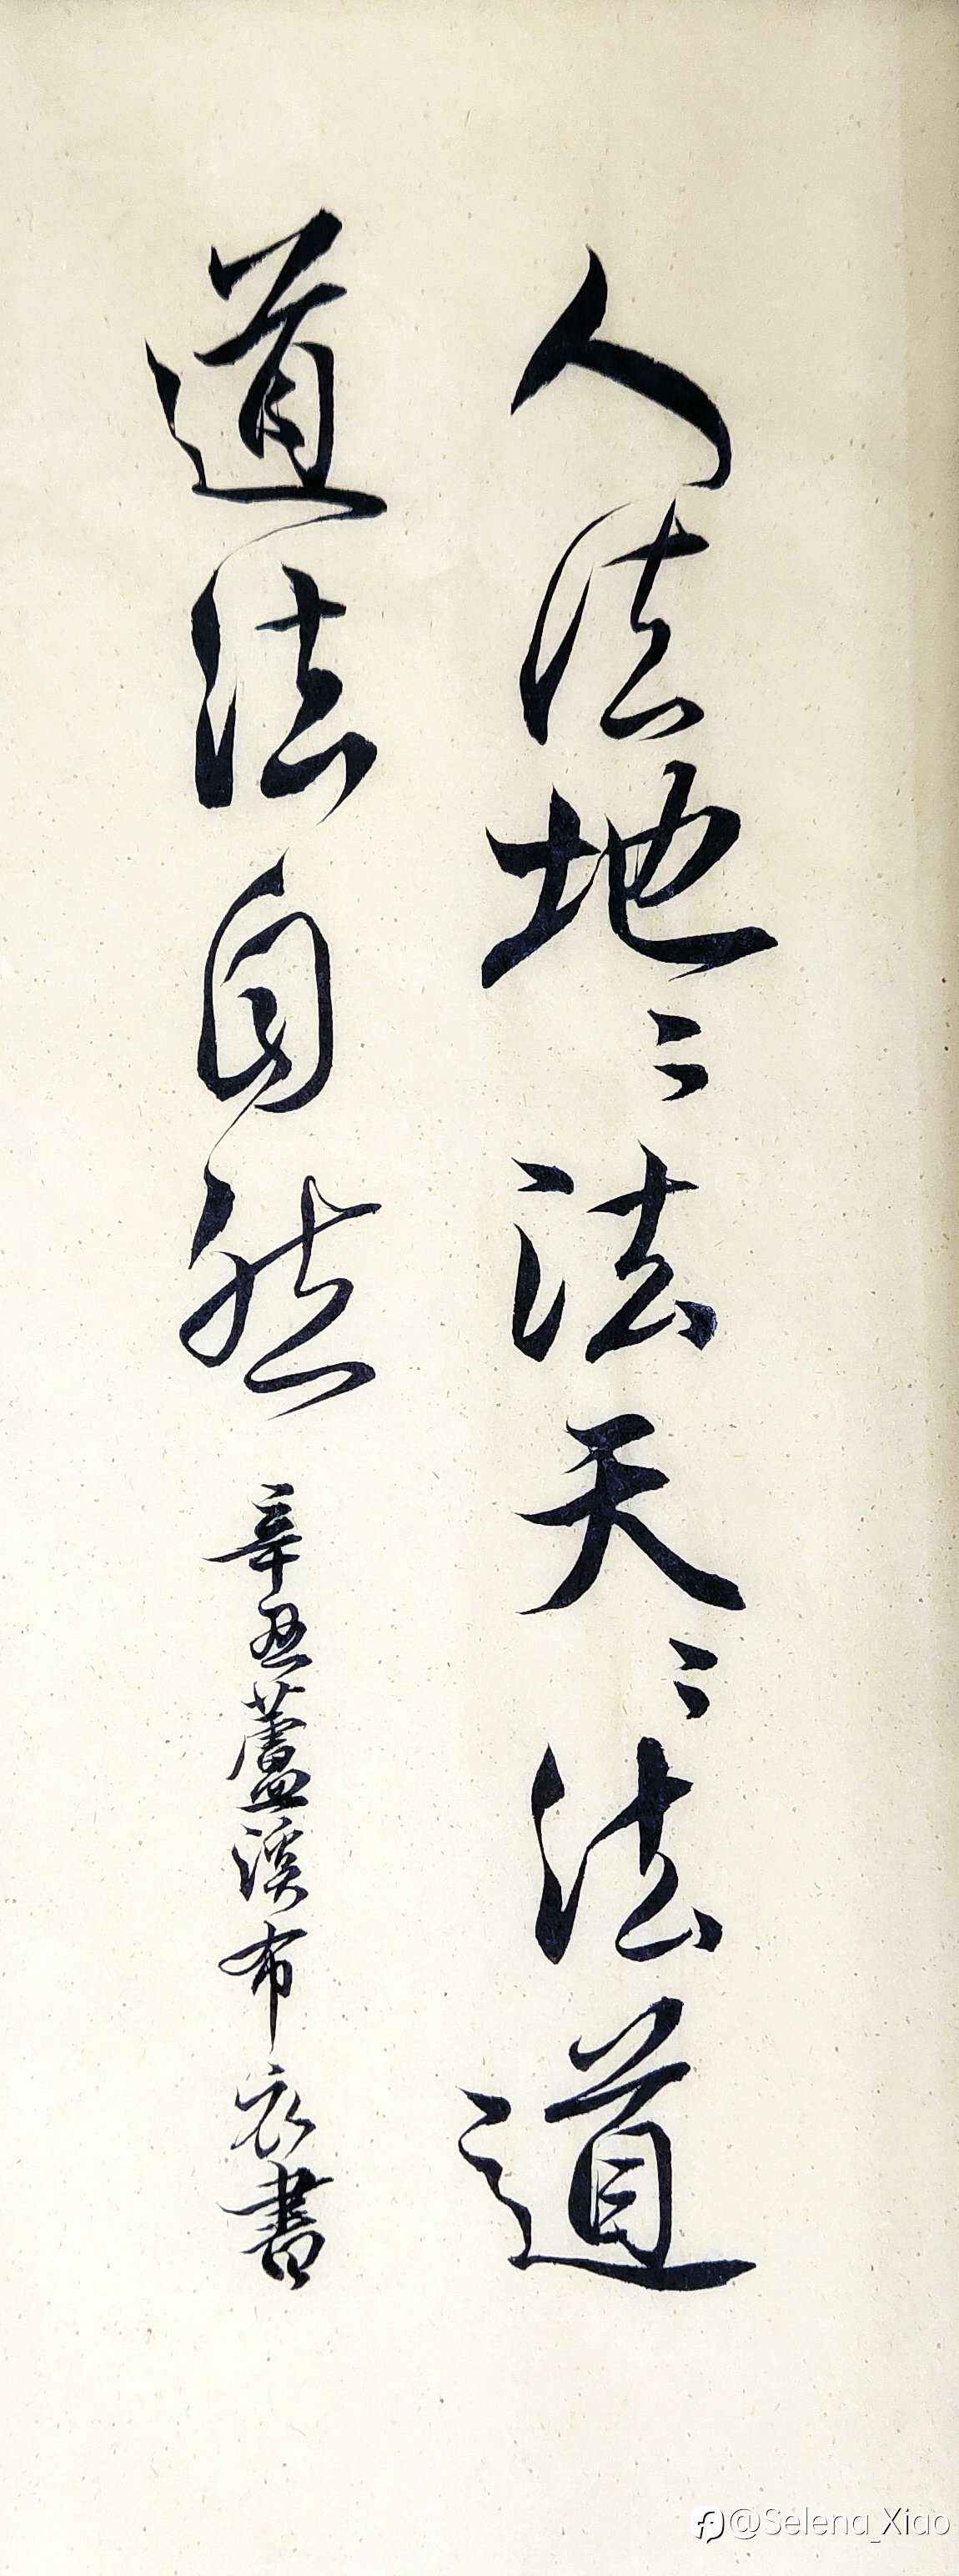 人法地〻法天〻法道
道法自然
辛丑蘆溪布衣書
@Selena_Xiao